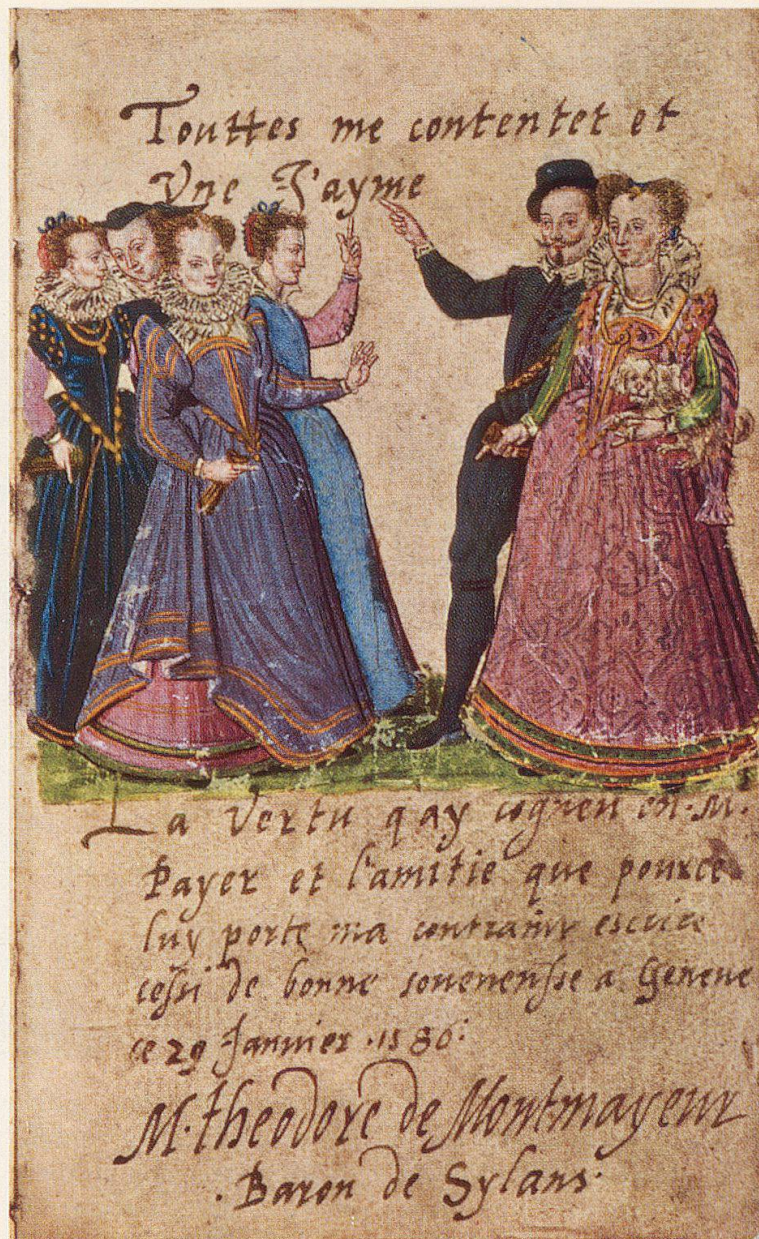 Touttes me contentet et
Vne J'ayme
La Vertu q ay cogneu en .M.
Payer et l'amitie que pource
luy porte ma contraint escrire
cessi de bonne souvenensse a Geneve
ce 29 Janvier .1586:
M. theodore de Montmayeur
. Baron de Sylans.